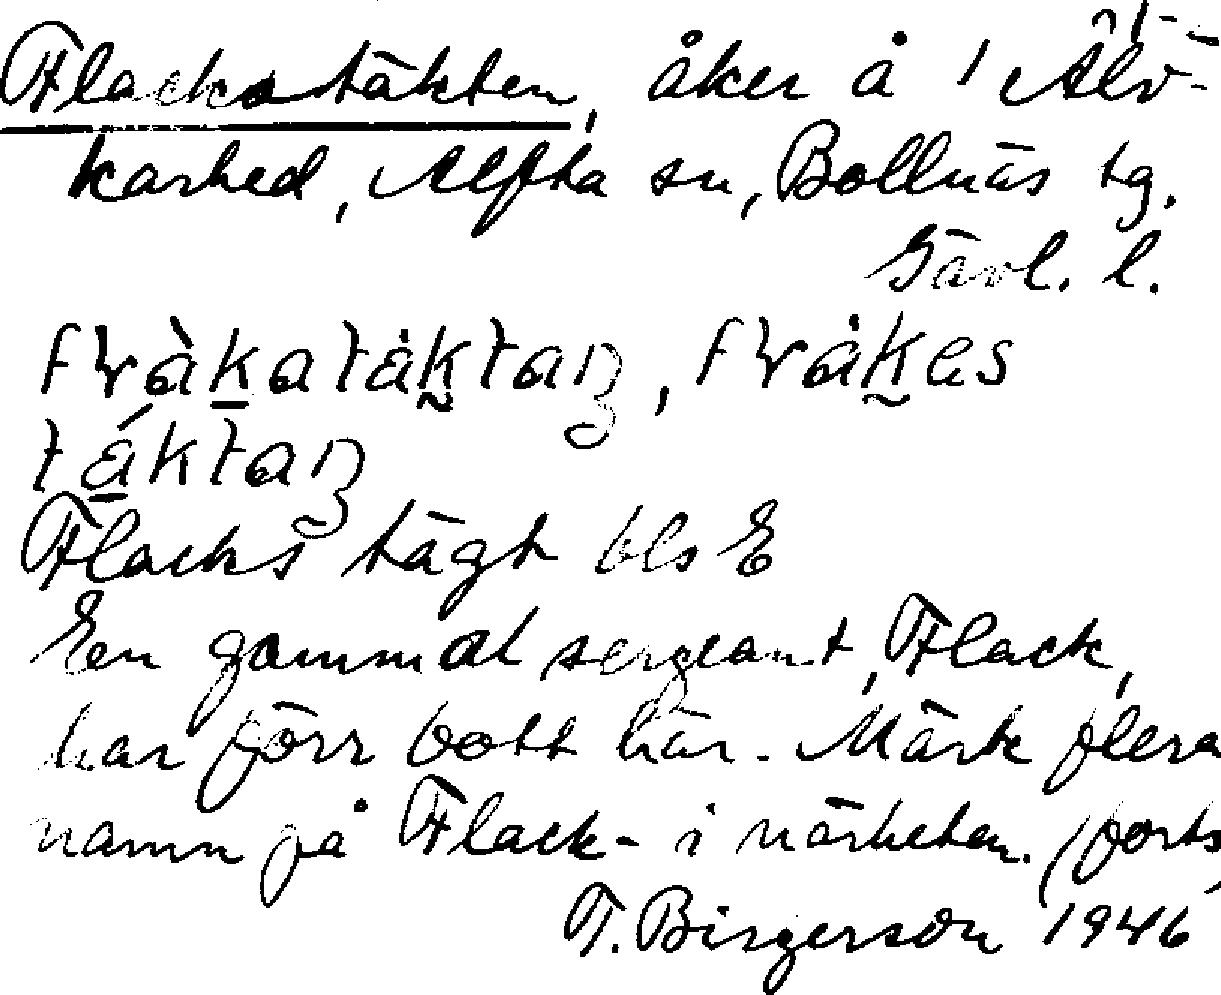 Flackstäkten, åker å 1 Älv-
karhed, Alfta sn, Bollnäs tg.
Gävl. l.
Flacks tägt bls E
En gammal sergeant, Flack,
har förr bott här. Märk flera
namn på Flack- i närheten. (forts
T. Birgerson 1946